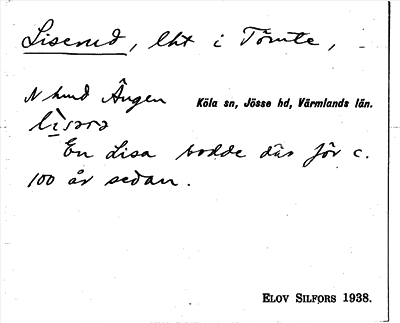 Liserud, lht i Tömte,
N hmd Ängen Köla sn, Jösse hd, Värmlands län.
En Lisa bodde där för c.
100 år sedan.
ELOV SILFORS 1938.